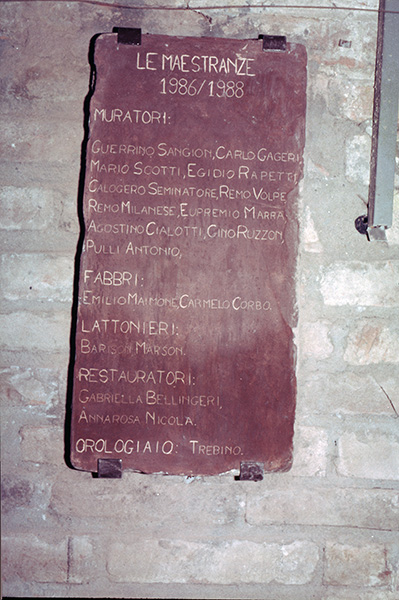 LE MAESTRANZE
1986/1988
MURATORI:
GUERRINO SANGION, CARLO GAGERI
MARIO SCOTTI, EGIDIO RAPETTI
CALOGERO SEMINATORE, REMO VOLPE
REMO MILANESE, EUPREMIO MARRA,
AGOSTINO CIALOTTI, GINO RUZZON,
PULLI ANTONIO,
FABBRI:
EMILIO MAIMONE, CARMELO CORBO.
LATTONIERI:
BARISON MARSON.
RESTAURATORI:
GABRIELLA BELLINGERI,
ANNAROSA NICOLA.
OROLOGIAIO: TREBINO.